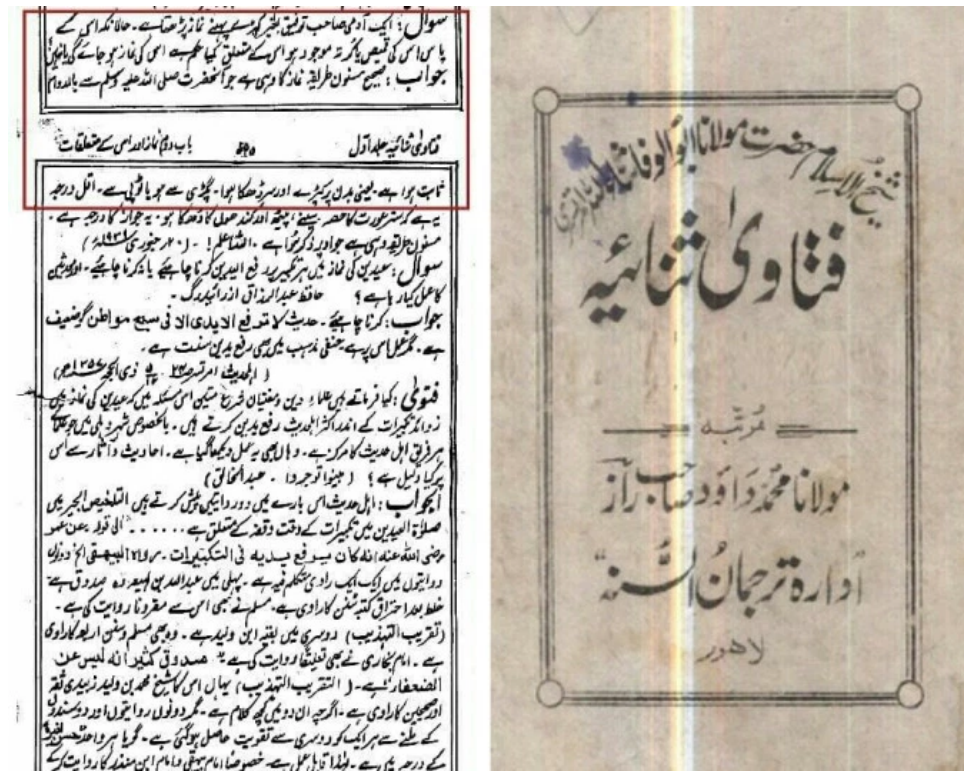 سوال: ایک آدمی صاحب توفیق بغیر کپڑے پہنے نماز پڑھتا ہے۔ حالانکہ اس کے
پاس اس کی قمیص یا کرتہ موجود ہو اس کے متعلق کیا حکم ہے اس کی نماز ہو جائے گی یا نہیں
جواب: صحیح مسنون طریقہ نماز کا وہی ہے جو آنحضرت صلی اللہ علیہ وسلم سے بالدوام
فتاویٰ ثنائیہ جلد اول
۵۲۵
باب دوم نماز اور اس کے متعلقات
ثابت ہوا ہے۔ یعنی بدن پر کپڑے اور سر ڈھکا ہوا۔ پگڑی سے ہو یا ٹوپی سے۔ اقل درجہ
یہ ہے کہ ستر عورت کا حصہ سینے، پیٹھ اور کندھوں کا ڈھکا ہو۔ یہ جواز کا درجہ ہے۔
مسنون طریقہ وہی ہے جو اوپر ذکر ہوا ہے۔ اللہ اعلم! - (۲۰ جنوری ۱۹۳۸ء)
سوال: عیدین کی نماز میں ہر تکبیر پر رفع الیدین کرنا چاہیے یا نہ کرنا چاہیے۔
کا عمل کیا رہا ہے؟ حافظ عبدالرزاق از رائیدرگ۔
جواب: کرنا چاہیے۔ حدیث لا ترفع الایدی الا فی سبع مواطن گو ضعیف
ہے۔ مگر عمل اس پر ہے حنفی مذہب میں بھی رفع یدین سنت ہے۔
(اہلحدیث امرتسر ذی الحجہ ۱۳۵۶ھ)
فتویٰ: کیا فرماتے ہیں علماء دین و مفتیان شرع متین اس مسئلہ میں کہ عیدین کی نماز میں
زوائد تکبیرات کے اندر اکثر اہلحدیث رفع یدین کرتے ہیں۔ بالخصوص شہر دہلی میں جو
ہر فریق اہل حدیث کا مرکز ہے۔ وہاں بھی یہ عمل دیکھا گیا ہے۔ احادیث و آثار سے اس
پر کیا دلیل ہے؟ (بینوا توجروا۔ عبدالخالق)
الجواب: اہل حدیث اس بارے میں دو روایتیں پیش کرتے ہیں التلخیص الحبیر میں
صلوٰۃ العیدین میں تکبیرات کے وقت وقفہ کے متعلق ہے ...... الی قولہ عن عمر
رضی اللہ عنہ انہ کان یرفع یدیہ فی التکبیرات۔ رواہ البیہقی الخ دونوں
روایتوں میں ایک ایک راوی متکلم فیہ ہے۔ پہلی میں عبداللہ بن لہیعہ وہ صدوق ہے
خلط بعد احتراق کتبہ سنن کا راوی ہے۔ مسلم نے بھی اس سے مقرونا روایت کی ہے۔
(تقریب التہذیب) دوسری میں بقیہ ابن ولید ہے۔ وہ بھی مسلم و سنن اربعہ کا راوی
ہے۔ امام بخاری نے بھی تعلیقا روایت کی ہے صدوق کثیر انہ لیس عن
الضعفاء ہے۔ (التقریب التہذیب) یہاں اس کا شیخ محمد بن ولید زبیدی ثقہ
اور صحیحین کا راوی ہے۔ اگرچہ ان دو میں کچھ کلام ہے۔ مگر دونوں روایتوں اور دو سندوں
کے ملنے سے ہر ایک کو دوسری سے تقویت حاصل ہو گئی ہے۔ گویا ہر واحد حسن لغیرہ
کے درجہ میں ہے۔ لہٰذا قابل عمل ہے۔ خصوصاً امام بیہقی و امام ابن منذر کا روایت کے
شیخ الاسلام حضرت مولانا ابو الوفا ثناء اللہ امرتسری
فتاویٰ ثنائیہ
مرتبہ
مولانا محمد داؤد صاحب راز
ادارہ ترجمان السنہ
لاہور